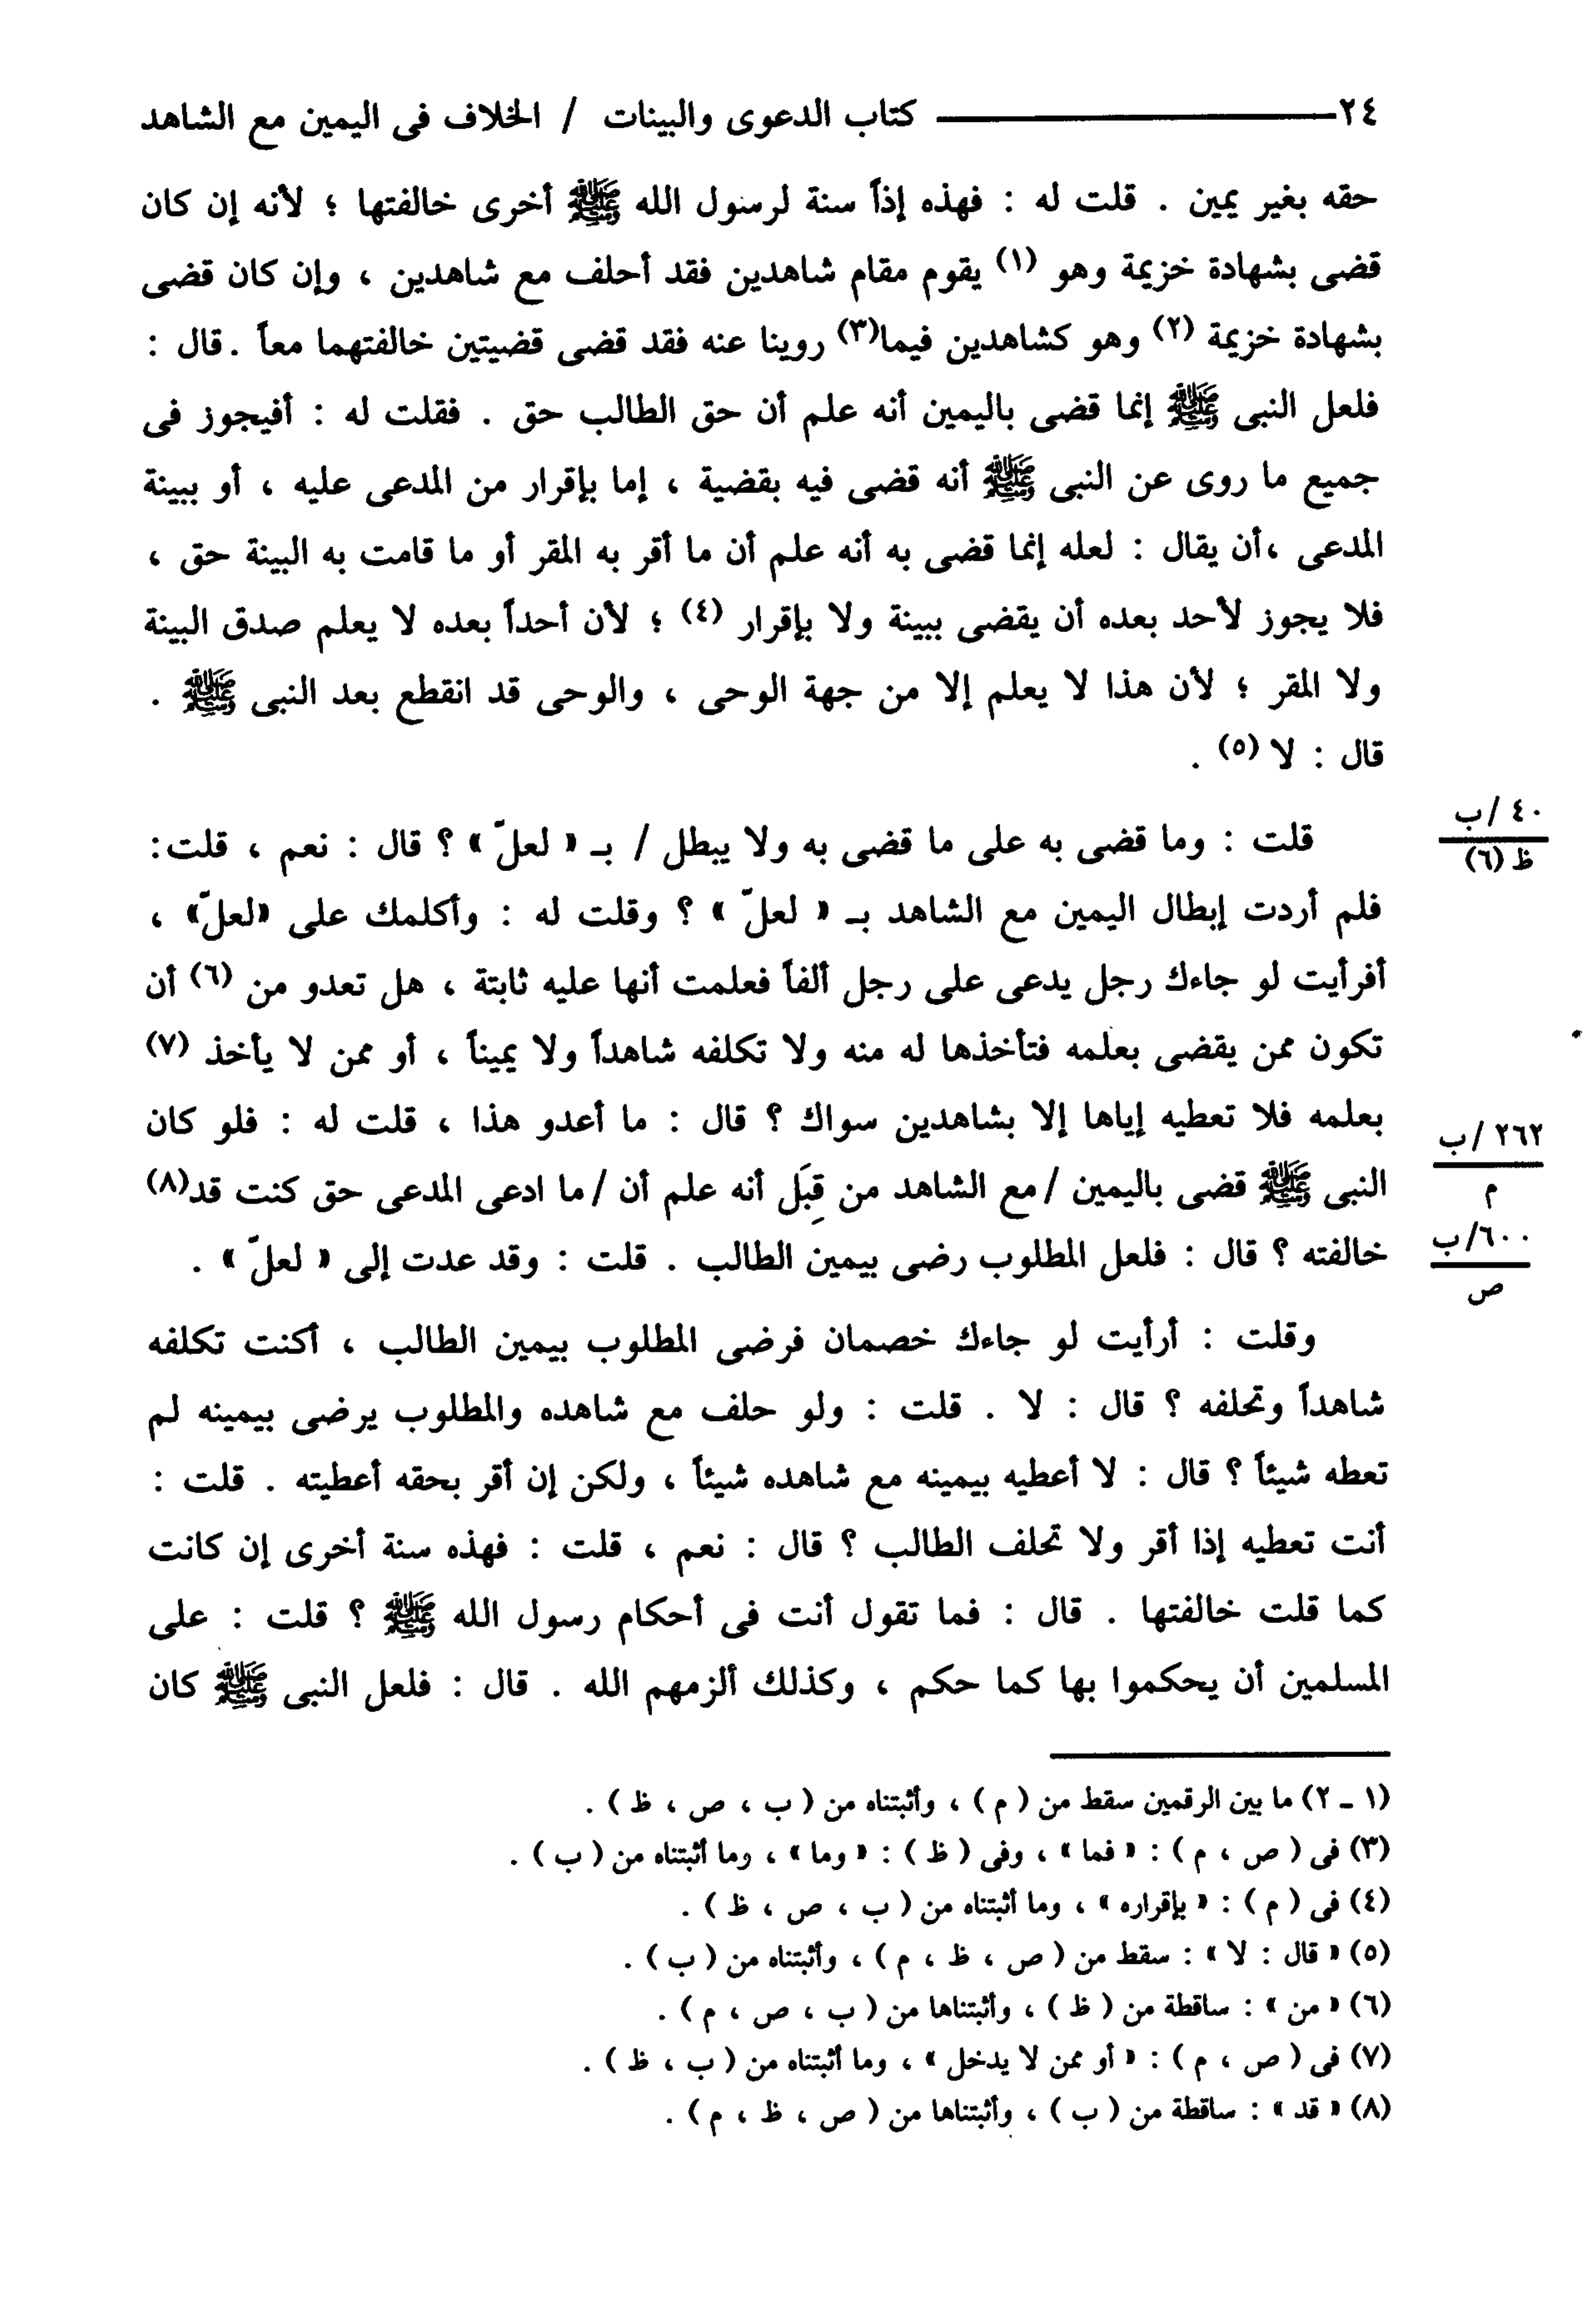 ٢٤ ـــــــ كتاب الدعوى والبينات / الخلاف فى اليمين مع الشاهد
حقه بغير يمين . قلت له : فهذه إذاً سنة لرسول الله ﷺ أخرى خالفتها ؛ لأنه إن كان
قضى بشهادة خزيمة وهو (١) يقوم مقام شاهدين فقد أحلف مع شاهدين ، وإن كان قضى
بشهادة خزيمة (٢) وهو كشاهدين فيما(٣) روينا عنه فقد قضى قضيتين خالفتهما معاً . قال :
فلعل النبى ﷺ إنما قضى باليمين أنه علم أن حق الطالب حق . فقلت له : أفيجوز فى
جميع ما روى عن النبى ﷺ أنه قضى فيه بقضية ، إما بإقرار من المدعى عليه ، أو ببينة
المدعى ،أن يقال : لعله إنما قضى به أنه علم أن ما أقر به المقر أو ما قامت به البينة حق ،
فلا يجوز لأحد بعده أن يقضى ببينة ولا بإقرار (٤) ؛ لأن أحداً بعده لا يعلم صدق البينة
ولا المقر ؛ لأن هذا لا يعلم إلا من جهة الوحى ، والوحى قد انقطع بعد النبى ﷺ .
قال : لا (٥) .
٤٠ /ب
ظ (٦)
قلت : وما قضى به على ما قضى به ولا يبطل / بـ « لعلّ » ؟ قال : نعم ، قلت:
فلم أردت إبطال اليمين مع الشاهد بـ « لعلّ » ؟ وقلت له : وأكلمك على «لعلّ» ،
أفرأيت لو جاءك رجل يدعى على رجل ألفاً فعلمت أنها عليه ثابتة ، هل تعدو من (٦) أن
تكون ممن يقضى بعلمه فتأخذها له منه ولا تكلفه شاهداً ولا يميناً ، أو ممن لا يأخذ (٧)
بعلمه فلا تعطيه إياها إلا بشاهدين سواك ؟ قال : ما أعدو هذا ، قلت له : فلو كان
٢٦٢ /ب
م
النبى ﷺ قضى باليمين /مع الشاهد من قِبَل أنه علم أن /ما ادعى المدعى حق كنت قد(٨)
٦٠٠/ب
ص
خالفته ؟ قال : فلعل المطلوب رضى بيمين الطالب . قلت : وقد عدت إلى « لعلّ » .
وقلت : أرأيت لو جاءك خصمان فرضى المطلوب بيمين الطالب ، أكنت تكلفه
شاهداً وتحلفه ؟ قال : لا . قلت : ولو حلف مع شاهده والمطلوب يرضى بيمينه لم
تعطه شيئاً ؟ قال : لا أعطيه بيمينه مع شاهده شيئاً ، ولكن إن أقر بحقه أعطيته . قلت :
أنت تعطيه إذا أقر ولا تحلف الطالب ؟ قال : نعم ، قلت : فهذه سنة أخرى إن كانت
كما قلت خالفتها . قال : فما تقول أنت فى أحكام رسول الله ﷺ ؟ قلت : على
المسلمين أن يحكموا بها كما حكم ، وكذلك ألزمهم الله . قال : فلعل النبى ﷺ كان
(١ ـ ٢) ما بين الرقمين سقط من ( م ) ، وأثبتناه من ( ب ، ص ، ظ ) .
(٣) فى ( ص ، م ) : « فما » ، وفى ( ظ ) : « وما » ، وما أثبتناه من ( ب ) .
(٤) فى ( م ) : « بإقراره » ، وما أثبتناه من ( ب ، ص ، ظ ) .
(٥) « قال : لا » : سقط من ( ص ، ظ ، م ) ، وأثبتناه من ( ب ) .
(٦) « من » : ساقطة من ( ظ ) ، وأثبتناها من ( ب ، ص ، م ) .
(٧) فى ( ص ، م ) : « أو ممن لا يدخل » ، وما أثبتناه من ( ب ، ظ ) .
(٨) « قد » : ساقطة من ( ب ) ، وأثبتناها من ( ص ، ظ ، م ) .